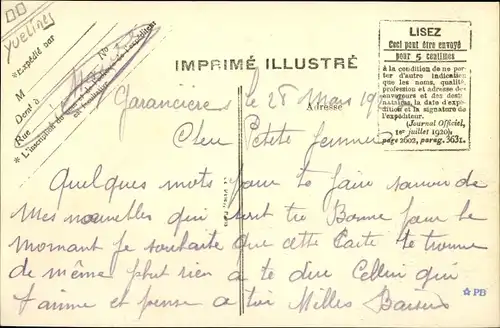 YVELINES
*Expédié par
M
Demt à
Rue
No
* L'inscription du nom et de l'adresse de l'expéditeur
est facultative
IMPRIMÉ ILLUSTRÉ
Adresse
LISEZ
Ceci peut être envoyé
pour 5 centimes
à la condition de ne por-
ter d'autre indication
que les noms, qualité,
profession et adresse des
envoyeurs et des desti-
nataires, la date d'expé-
dition et la signature de
l'expéditeur.
(Journal Officiel,
1er juillet 1920)
page 2602, parag. 3631.
Garancieres le 28 Mars
Cher Petite femme
Quelques mots pour te faire savoir de
Mes nouvelles qui sont tres Bonne pour le
moment Je souhaite que cette Carte te trouve
de même plut rien a te dire Cellui qui
t'aime et pense a toi Milles Baisers
PB